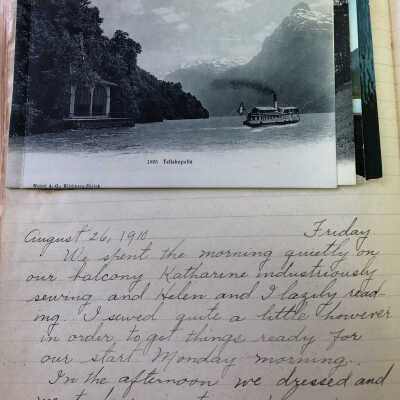 Tellskapelle
Wehrli A. G., Kilchberg-Zürich
August 26, 1910 Friday
We spent the morning quietly on
our balcony Katharine industriously
sewing and Helen and I lazily read-
ing. I sewed quite a little however
in order to get things ready for
our start Monday morning.
In the afternoon we dressed and